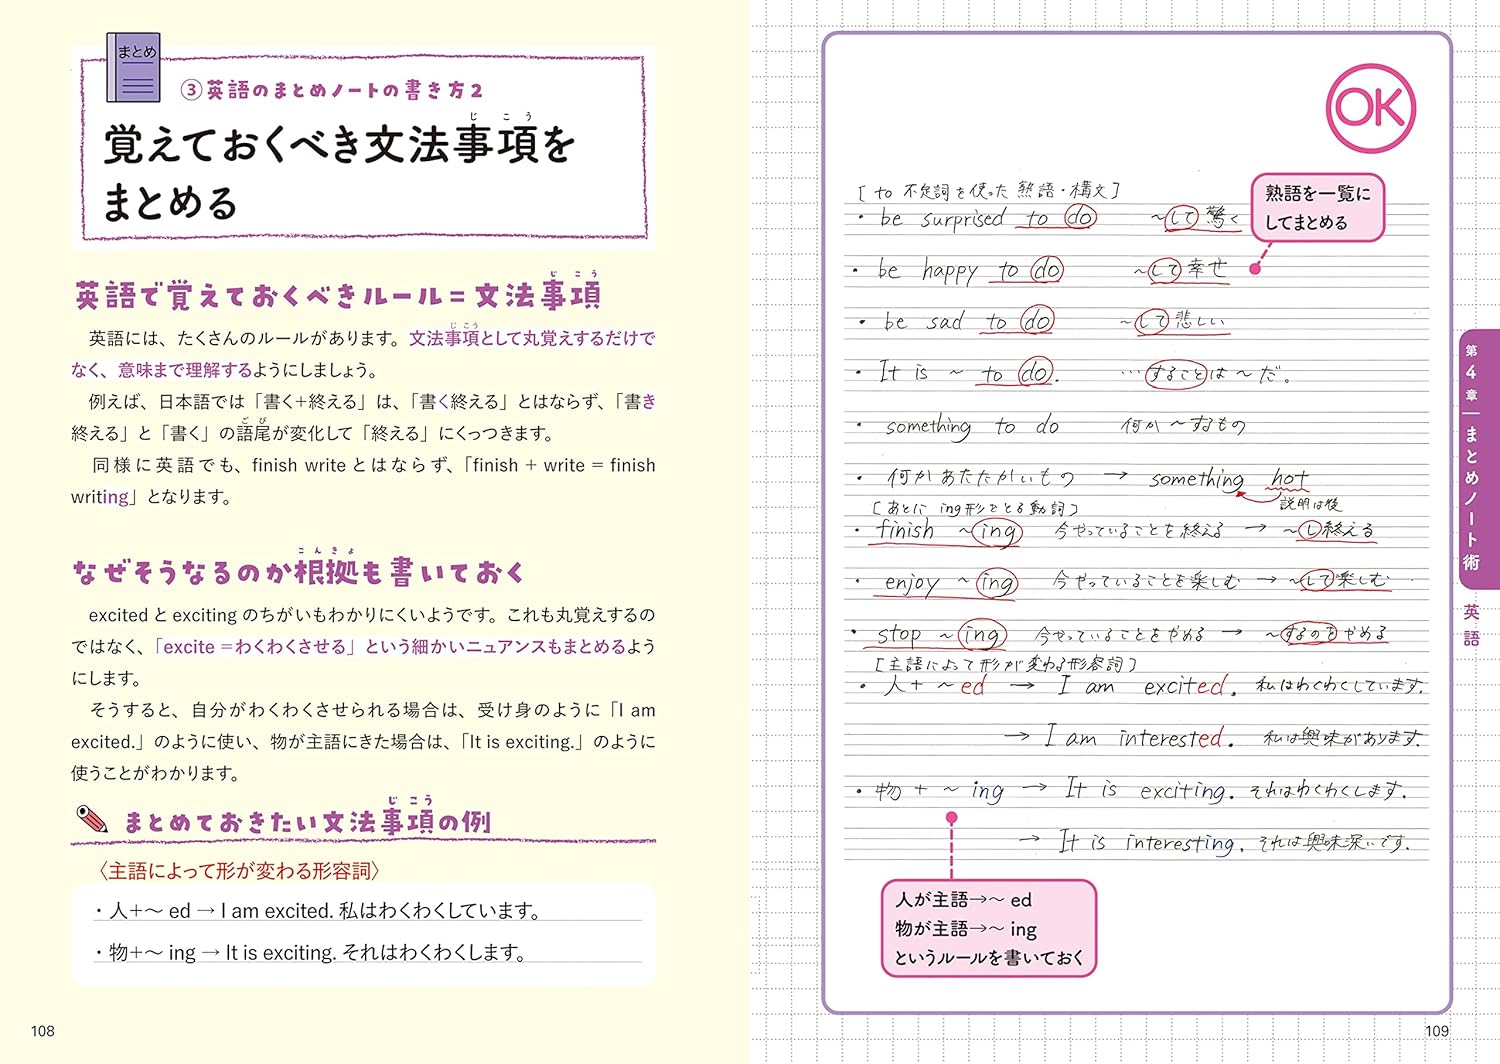 まとめ
③英語のまとめノートの書き方2
じこう
覚えておくべき文法事項を
まとめる
じこう
英語で覚えておくべきルール=文法事項
英語には、たくさんのルールがあります。文法事項として丸覚えするだけで
じこう
なく、意味まで理解するようにしましょう。
例えば、日本語では「書く+終える」は、「書く終える」とはならず、「書き
ごび
終える」と「書く」の語尾が変化して「終える」にくっつきます。
同様に英語でも、finish writeとはならず、「finish + write = finish
writing」となります。
こんきょ
なぜそうなるのか根拠も書いておく
excitedとexcitingのちがいもわかりにくいようです。これも丸覚えするの
ではなく、「excite=わくわくさせる」という細かいニュアンスもまとめるよう
にします。
そうすると、自分がわくわくさせられる場合は、受け身のように「I am
excited.」のように使い、物が主語にきた場合は、「It is exciting.」のように
使うことがわかります。
じこう
まとめておきたい文法事項の例
〈主語によって形が変わる形容詞〉
・人+〜 ed → I am excited. 私はわくわくしています。
・物+〜 ing → It is exciting. それはわくわくします。
108
OK
熟語を一覧に
してまとめる
[to 不定詞を使った熟語・構文]
・be surprised to do 〜して驚く
・be happy to do 〜して幸せ
・be sad to do 〜して悲しい
・It is 〜 to do. …することは〜だ。
・something to do 何か〜するもの
・何かあたたかいもの → something hot
説明は後
[あとに ing形をとる動詞]
・finish 〜ing 今やっていることを終える → 〜し終える
・enjoy 〜ing 今やっていることを楽しむ → 〜して楽しむ
・stop 〜ing 今やっていることをやめる → 〜するのをやめる
[主語によって形が変わる形容詞]
・人+〜ed → I am excited. 私はわくわくしています。
→ I am interested. 私は興味があります。
・物+〜ing → It is exciting. それはわくわくします。
→ It is interesting. それは興味深いです。
人が主語→〜 ed
物が主語→〜 ing
というルールを書いておく
第4章 まとめノート術
英語
109